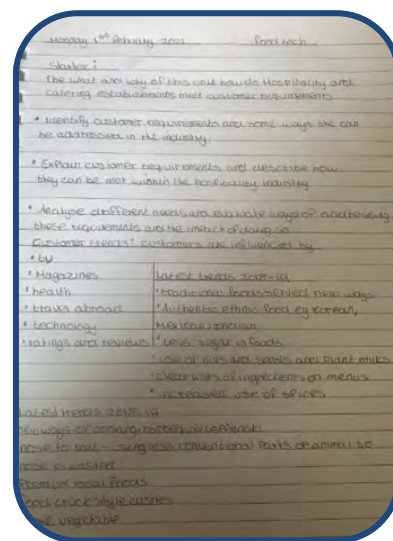 Monday 1st February 2021 Food tech
Starter:
The what and why of this unit how do Hospitality and
catering establishments meet customer requirements
• Identify customer requirements and some ways can
be addressed in the industry
• Explain customer requirements and describe how
they can be met within the hospitality industry
• Analyse different needs and evaluate ways of addressing
these requirements and the impact of doing so
Customer trends: customers are influenced by
• tv
• Magazines
• health
• travel abroad
• technology
• ratings and reviews
Latest trends 2018-19
• traditional foods served new ways
• Authentic ethnic food eg Korean,
Mexican, Indian
• Less sugar in foods
• use of nuts and seeds and plant milks
• clear lists of ingredients on menus
• increased use of spices
Latest trends 2018-19
new ways of cooking
nose to tail - using less conventional parts of animal so
none is wasted
Premium local foods
Food truck style
vegetable